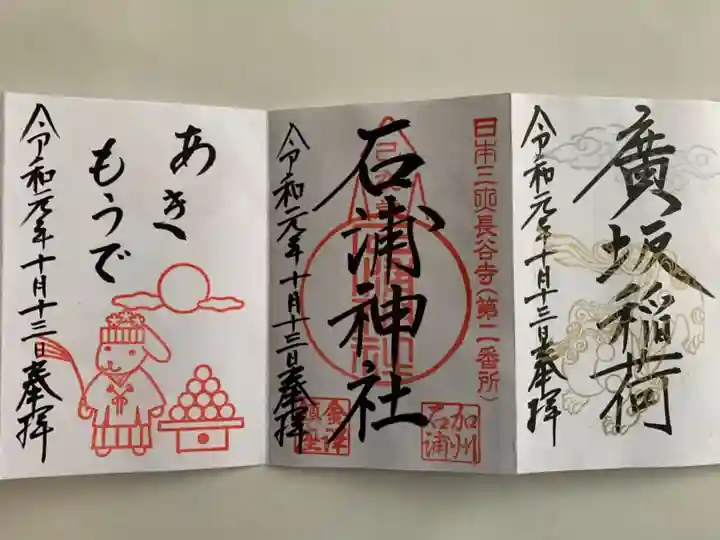 廣坂稲荷
令和元年十月十三日奉拝
日本三所長谷寺(第二番所)
石浦神社
加州
石浦
令和元年十月十三日奉拝
あき
もうで
令和元年十月十三日奉拝